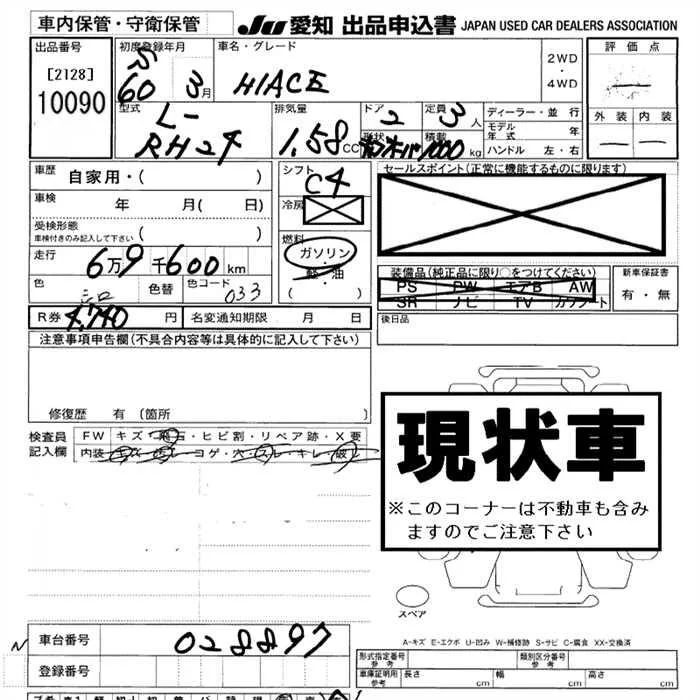 車内保管・守衛保管
JU 愛知 出品申込書 JAPAN USED CAR DEALERS ASSOCIATION
出品番号 初度登録年月 車名・グレード 評価点
[2128]
10090
S
60 3月 HIACE 2WD・4WD
外装 内装
型式 排気量 ドア 定員 ディーラー・並行
L-
RH24 1.58cc 2 3人 モデル年式 年
形状 積載 1000kg ハンドル 左・右
車歴 自家用・( )
シフト C4
セールスポイント(正常に機能するものに限ります)
車検 年 月( 日)
冷房
受検形態
車検付きのみ記入して下さい ( )
燃料 ガソリン・軽・油 ( )
走行 6万9千600km
装備品(純正品に限り○をつけてください) 新車保証書
PS PW エアB AW
SR ナビ TV カワシート
有・無
色 色替 色コード 033
R券 4,740円 名変通知期限 月 日
後日品
注意事項申告欄(不具合内容等は具体的に記入して下さい)
修復歴 有(箇所
検査員記入欄 FW キズ・飛石・ヒビ割・リペア跡・X要
内装 キズ・汚レ・コゲ・穴・スレ・キレ・破レ
現状車
※このコーナーは不動車も含み
ますのでご注意下さい
スペア
A-キズ E-エクボ U-凹み W-補修跡 S-サビ C-腐食 XX-交換済
N 車台番号 028897
登録番号
形式指定番号 参考 類別区分番号 参考
車庫証明用 参考 長さ cm 幅 cm 高さ cm